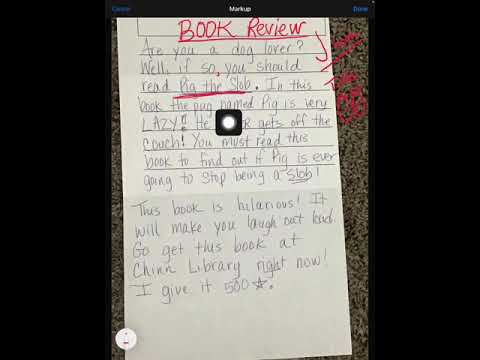 Cancel Markup Done
BOOK Review
Are you a dog lover?
Well, if so, you should
read Pig the Slob. In this
book the pug named Pig is very
LAZY!! He gets off the
couch! You must read this
book to find out if Pig is ever
going to stop being a slob!
This book is hilarious! It
will make you laugh out loud.
Go get this book at
Chinn Library right now!
I give it 500 ☆.